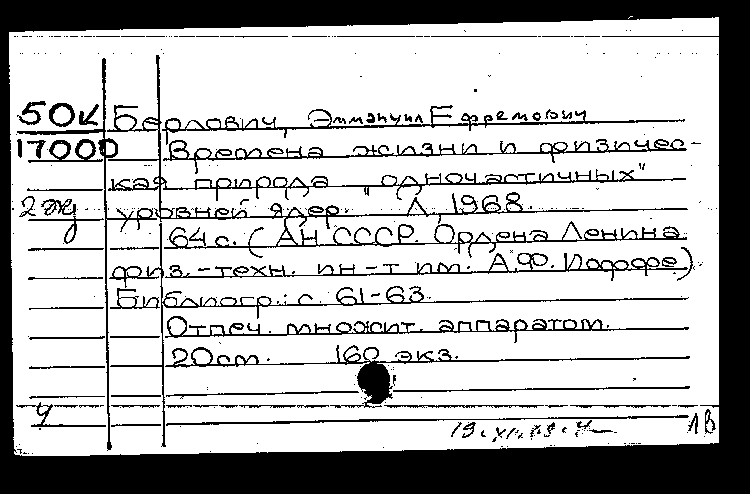 50К Берлович, Эммануил Ефремович
17000 Времена жизни и физичес-
кая природа "одночастичных"
2 эк уровней ядер. Л, 1968.
64 с. (АН СССР. Ордена Ленина
физ.-техн. ин-т им. А.Ф. Иоффе)
Библиогр.: с. 61-63.
Отпеч. множит. аппаратом.
20 см. 160 экз.
1В